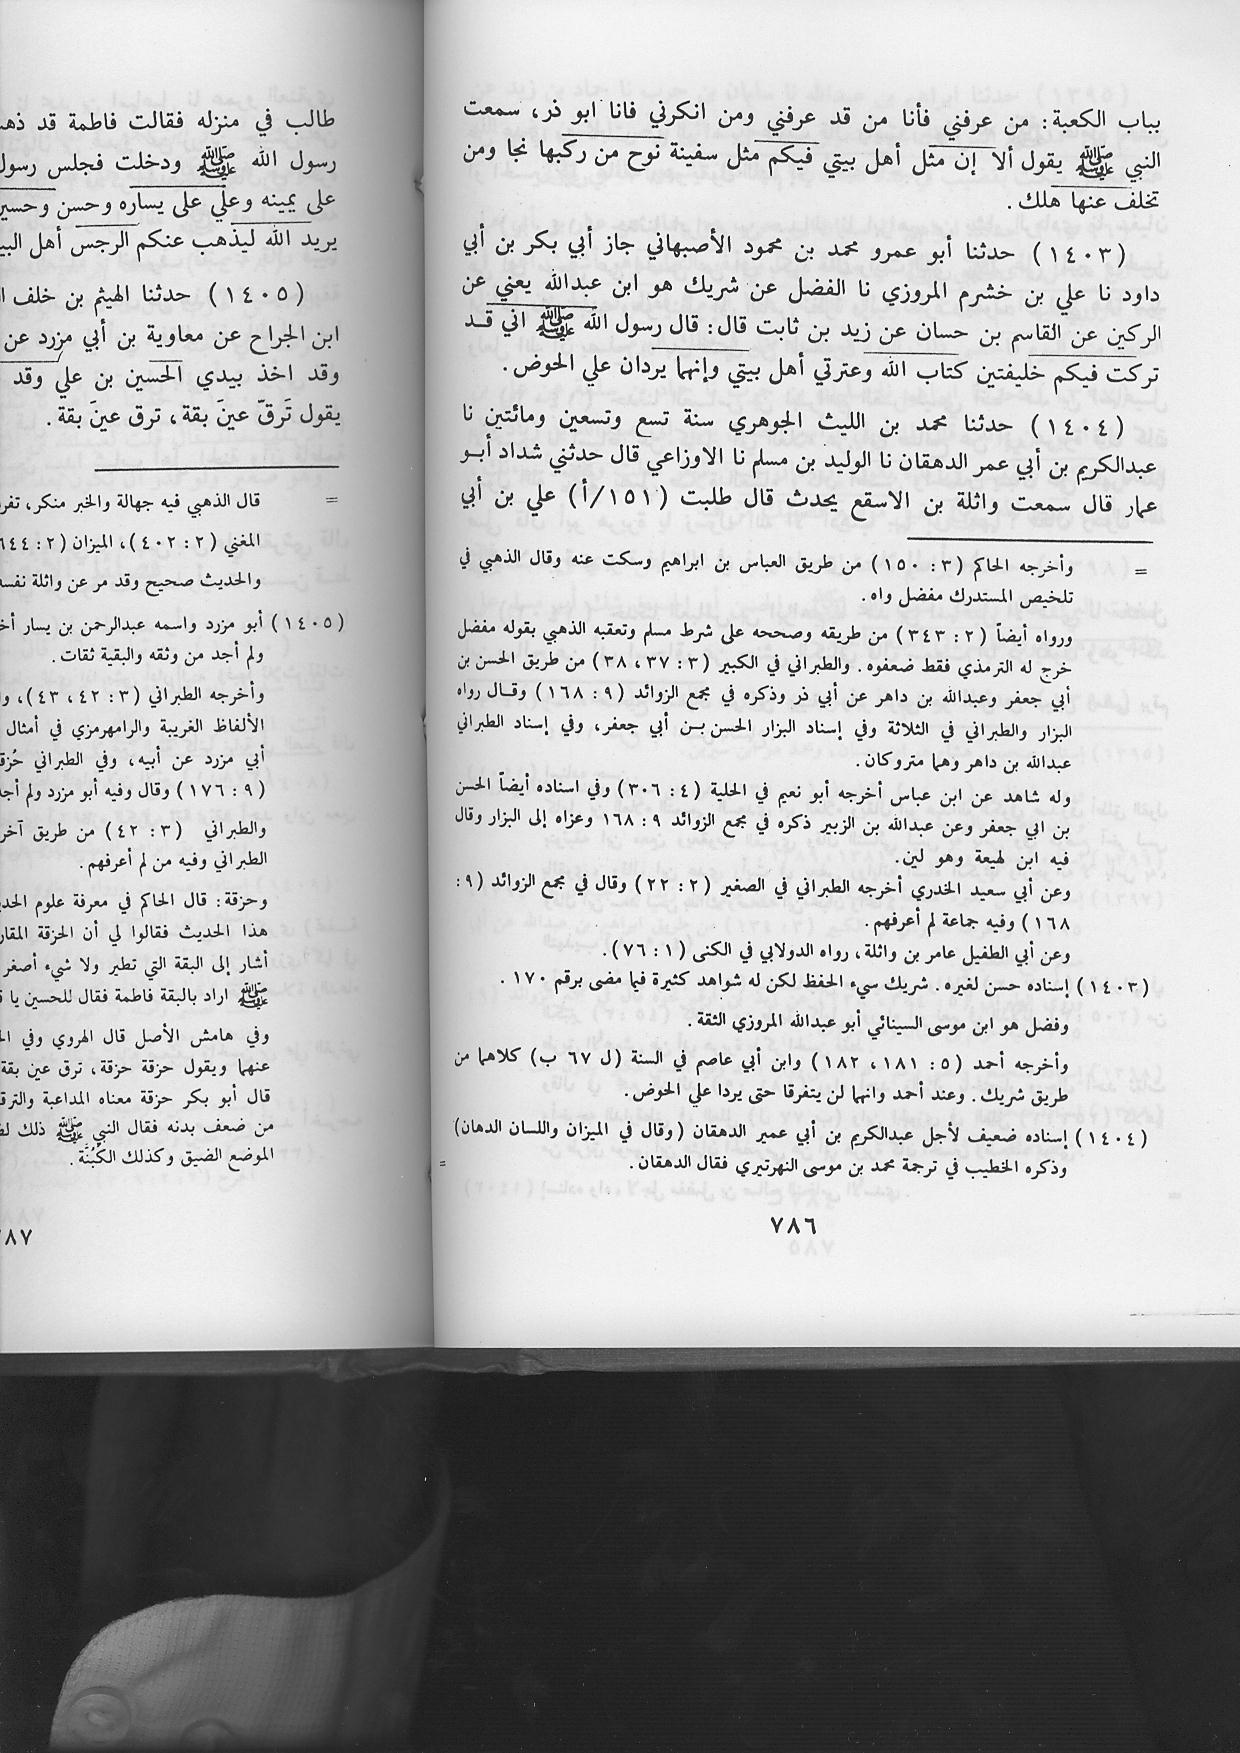 بباب الكعبة: من عرفني فأنا من قد عرفني ومن انكرني فانا ابو ذر، سمعت
النبي ﷺ يقول ألا إن مثل أهل بيتي فيكم مثل سفينة نوح من ركبها نجا ومن
تخلف عنها هلك.
(١٤٠٣) حدثنا أبو عمرو محمد بن محمود الأصبهاني جاز أبي بكر بن أبي
داود نا علي بن خشرم المروزي نا الفضل عن شريك هو ابن عبدالله يعني عن
الركين عن القاسم بن حسان عن زيد بن ثابت قال: قال رسول الله ﷺ اني قد
تركت فيكم خليفتين كتاب الله وعترتي أهل بيتي وإنهما يردان علي الحوض.
(١٤٠٤) حدثنا محمد بن الليث الجوهري سنة تسع وتسعين ومائتين نا
عبدالكريم بن أبي عمر الدهقان نا الوليد بن مسلم نا الاوزاعي قال حدثني شداد أبو
عمار قال سمعت واثلة بن الاسقع يحدث قال طلبت (١٥١/أ) علي بن أبي
= وأخرجه الحاكم (٣: ١٥٠) من طريق العباس بن ابراهيم وسكت عنه وقال الذهبي في
تلخيص المستدرك مفضل واه.
ورواه أيضاً (٢: ٣٤٣) من طريقه وصححه على شرط مسلم وتعقبه الذهبي بقوله مفضل
خرج له الترمذي فقط ضعفوه. والطبراني في الكبير (٣: ٣٧، ٣٨) من طريق الحسن بن
أبي جعفر وعبدالله بن داهر عن أبي ذر وذكره في مجمع الزوائد (٩: ١٦٨) وقال رواه
البزار والطبراني في الثلاثة وفي إسناد البزار الحسن بن أبي جعفر، وفي إسناد الطبراني
عبدالله بن داهر وهما متروكان.
وله شاهد عن ابن عباس أخرجه أبو نعيم في الحلية (٤: ٣٠٦) وفي اسناده أيضاً الحسن
بن ابي جعفر وعن عبدالله بن الزبير ذكره في مجمع الزوائد ٩: ١٦٨ وعزاه إلى البزار وقال
فيه ابن لهيعة وهو لين.
وعن أبي سعيد الخدري أخرجه الطبراني في الصغير (٢: ٢٢) وقال في مجمع الزوائد (٩:
١٦٨) وفيه جماعة لم أعرفهم.
وعن أبي الطفيل عامر بن واثلة، رواه الدولابي في الكنى (١: ٧٦).
(١٤٠٣) إسناده حسن لغيره. شريك سيء الحفظ لكن له شواهد كثيرة فيما مضى برقم ١٧٠.
وفضل هو ابن موسى السينائي أبو عبدالله المروزي الثقة.
وأخرجه أحمد (٥: ١٨١، ١٨٢) وابن أبي عاصم في السنة (ل ٦٧ ب) كلاهما من
طريق شريك. وعند أحمد وانهما لن يتفرقا حتى يردا علي الحوض.
(١٤٠٤) إسناده ضعيف لأجل عبدالكريم بن أبي عمير الدهقان (وقال في الميزان واللسان الدهان)
وذكره الخطيب في ترجمة محمد بن موسى النهرتيري فقال الدهقان. =
٧٨٦
طالب في منزله فقالت فاطمة قد
رسول الله ﷺ ودخلت فجلس رسول
على يمينه وعلي على يساره وحسن وحسين
يريد الله ليذهب عنكم الرجس أهل
(١٤٠٥) حدثنا الهيثم بن خلف
ابن الجراح عن معاوية بن أبي مزرد عن
وقد اخذ بيدي الحسين بن علي وقد
يقول تَرَقّ عينَ بقة، ترق عينَ بقة.
= قال الذهبي فيه جهالة والخبر منكر،
المغني (٢: ٤٠٢)، الميزان (٢:
والحديث صحيح وقد مر عن واثلة
(١٤٠٥) أبو مزرد واسمه عبدالرحمن بن يسار
ولم أجد من وثقه والبقية ثقات.
وأخرجه الطبراني (٣: ٤٢، ٤٣)،
الألفاظ الغريبة والرامهرمزي في أمثال
أبي مزرد عن أبيه، وفي الطبراني
(٩: ١٧٦) وقال وفيه أبو مزرد ولم
والطبراني (٣: ٤٢) من طريق
الطبراني وفيه من لم أعرفهم.
وحزقة: قال الحاكم في معرفة علوم
هذا الحديث فقالوا لي أن الحزقة
أشار إلى البقة التي تطير ولا شيء أصغر
ﷺ اراد بالبقة فاطمة فقال للحسين يا
وفي هامش الأصل قال الهروي وفي
عنهما ويقول حزقة حزقة، ترق عين بقة
قال أبو بكر حزقة معناه المداعبة
من ضعف بدنه فقال النبي ﷺ ذلك
الموضع الضيق وكذلك الكُبُنَّة.